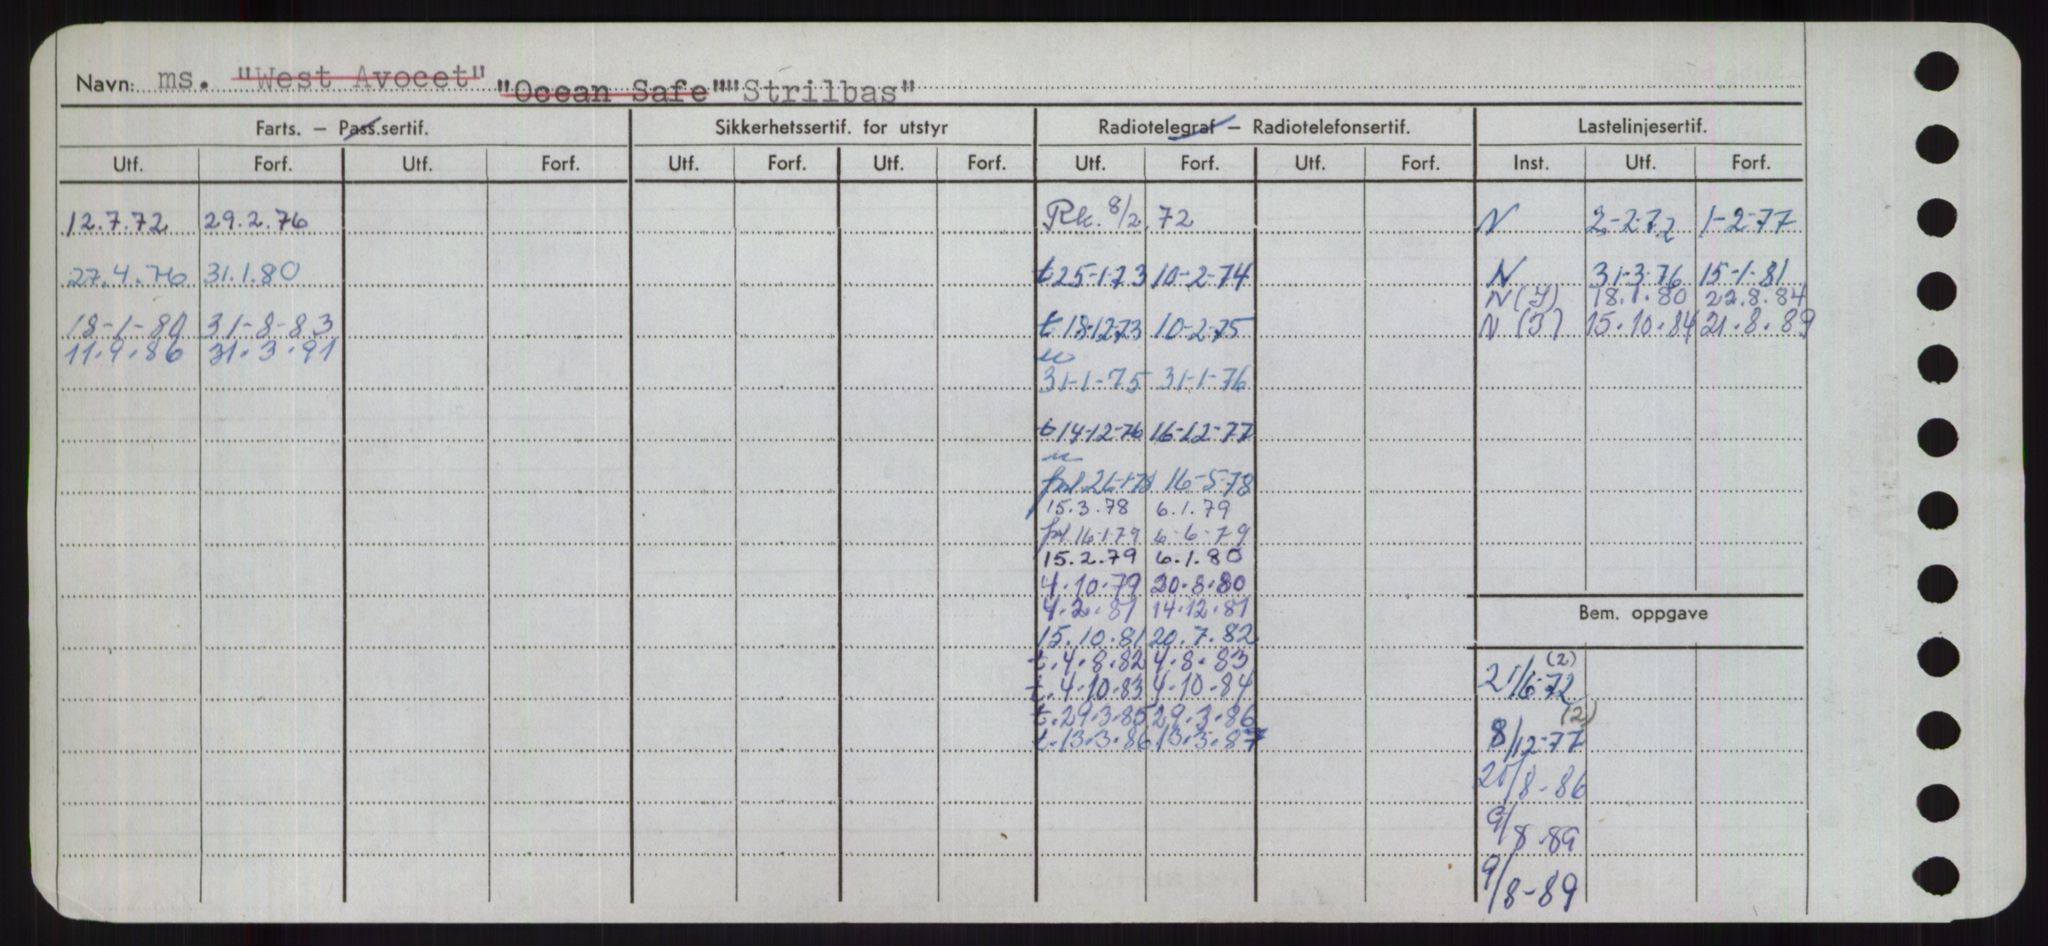 Navn: ms. "West Avocet" "Ocean Safe" ""Strilbas"
Farts. – Pass.sertif. Sikkerhetssertif. for utstyr Radiotelegraf – Radiotelefonsertif. Lastelinjesertif.
Utf. Forf. Utf. Forf. Utf. Forf. Utf. Forf. Utf. Forf. Utf. Forf. Inst. Utf. Forf.
12.7.72 29.2.76 Rk. 8/2.72 N 2-2-72 1-2-77
27.4.76 31.1.80 t 25-1-73 10-2-74 N 31-3-76 15-1-81
N(J) 18.1.80 22.8.84
18-1-80 31-8-83 t 18-12-73 10-2-75 N (J) 15.10.84 21.8.89
11.9.86 31.3.91
31-1-75 31-1-76
t 14-12-76 16-12-77
frl. 26-1-78 16-5-78
15.3.78 6.1.79
frl. 16-1-79 6-6-79
15.2.79 6.1.80
4.10.79 20.8.80
4.2.81 14.12.81
Bem. oppgave
15.10.81 20.7.82
t. 4.8.82 4.8.83
(2)
21/6-72
t. 4.10.83 4.10.84
t. 29.3.85 29.3.86
(2)
8/12-77
t. 13.3.86 13.3.87
25/8-86
9/8.89
9/8-89